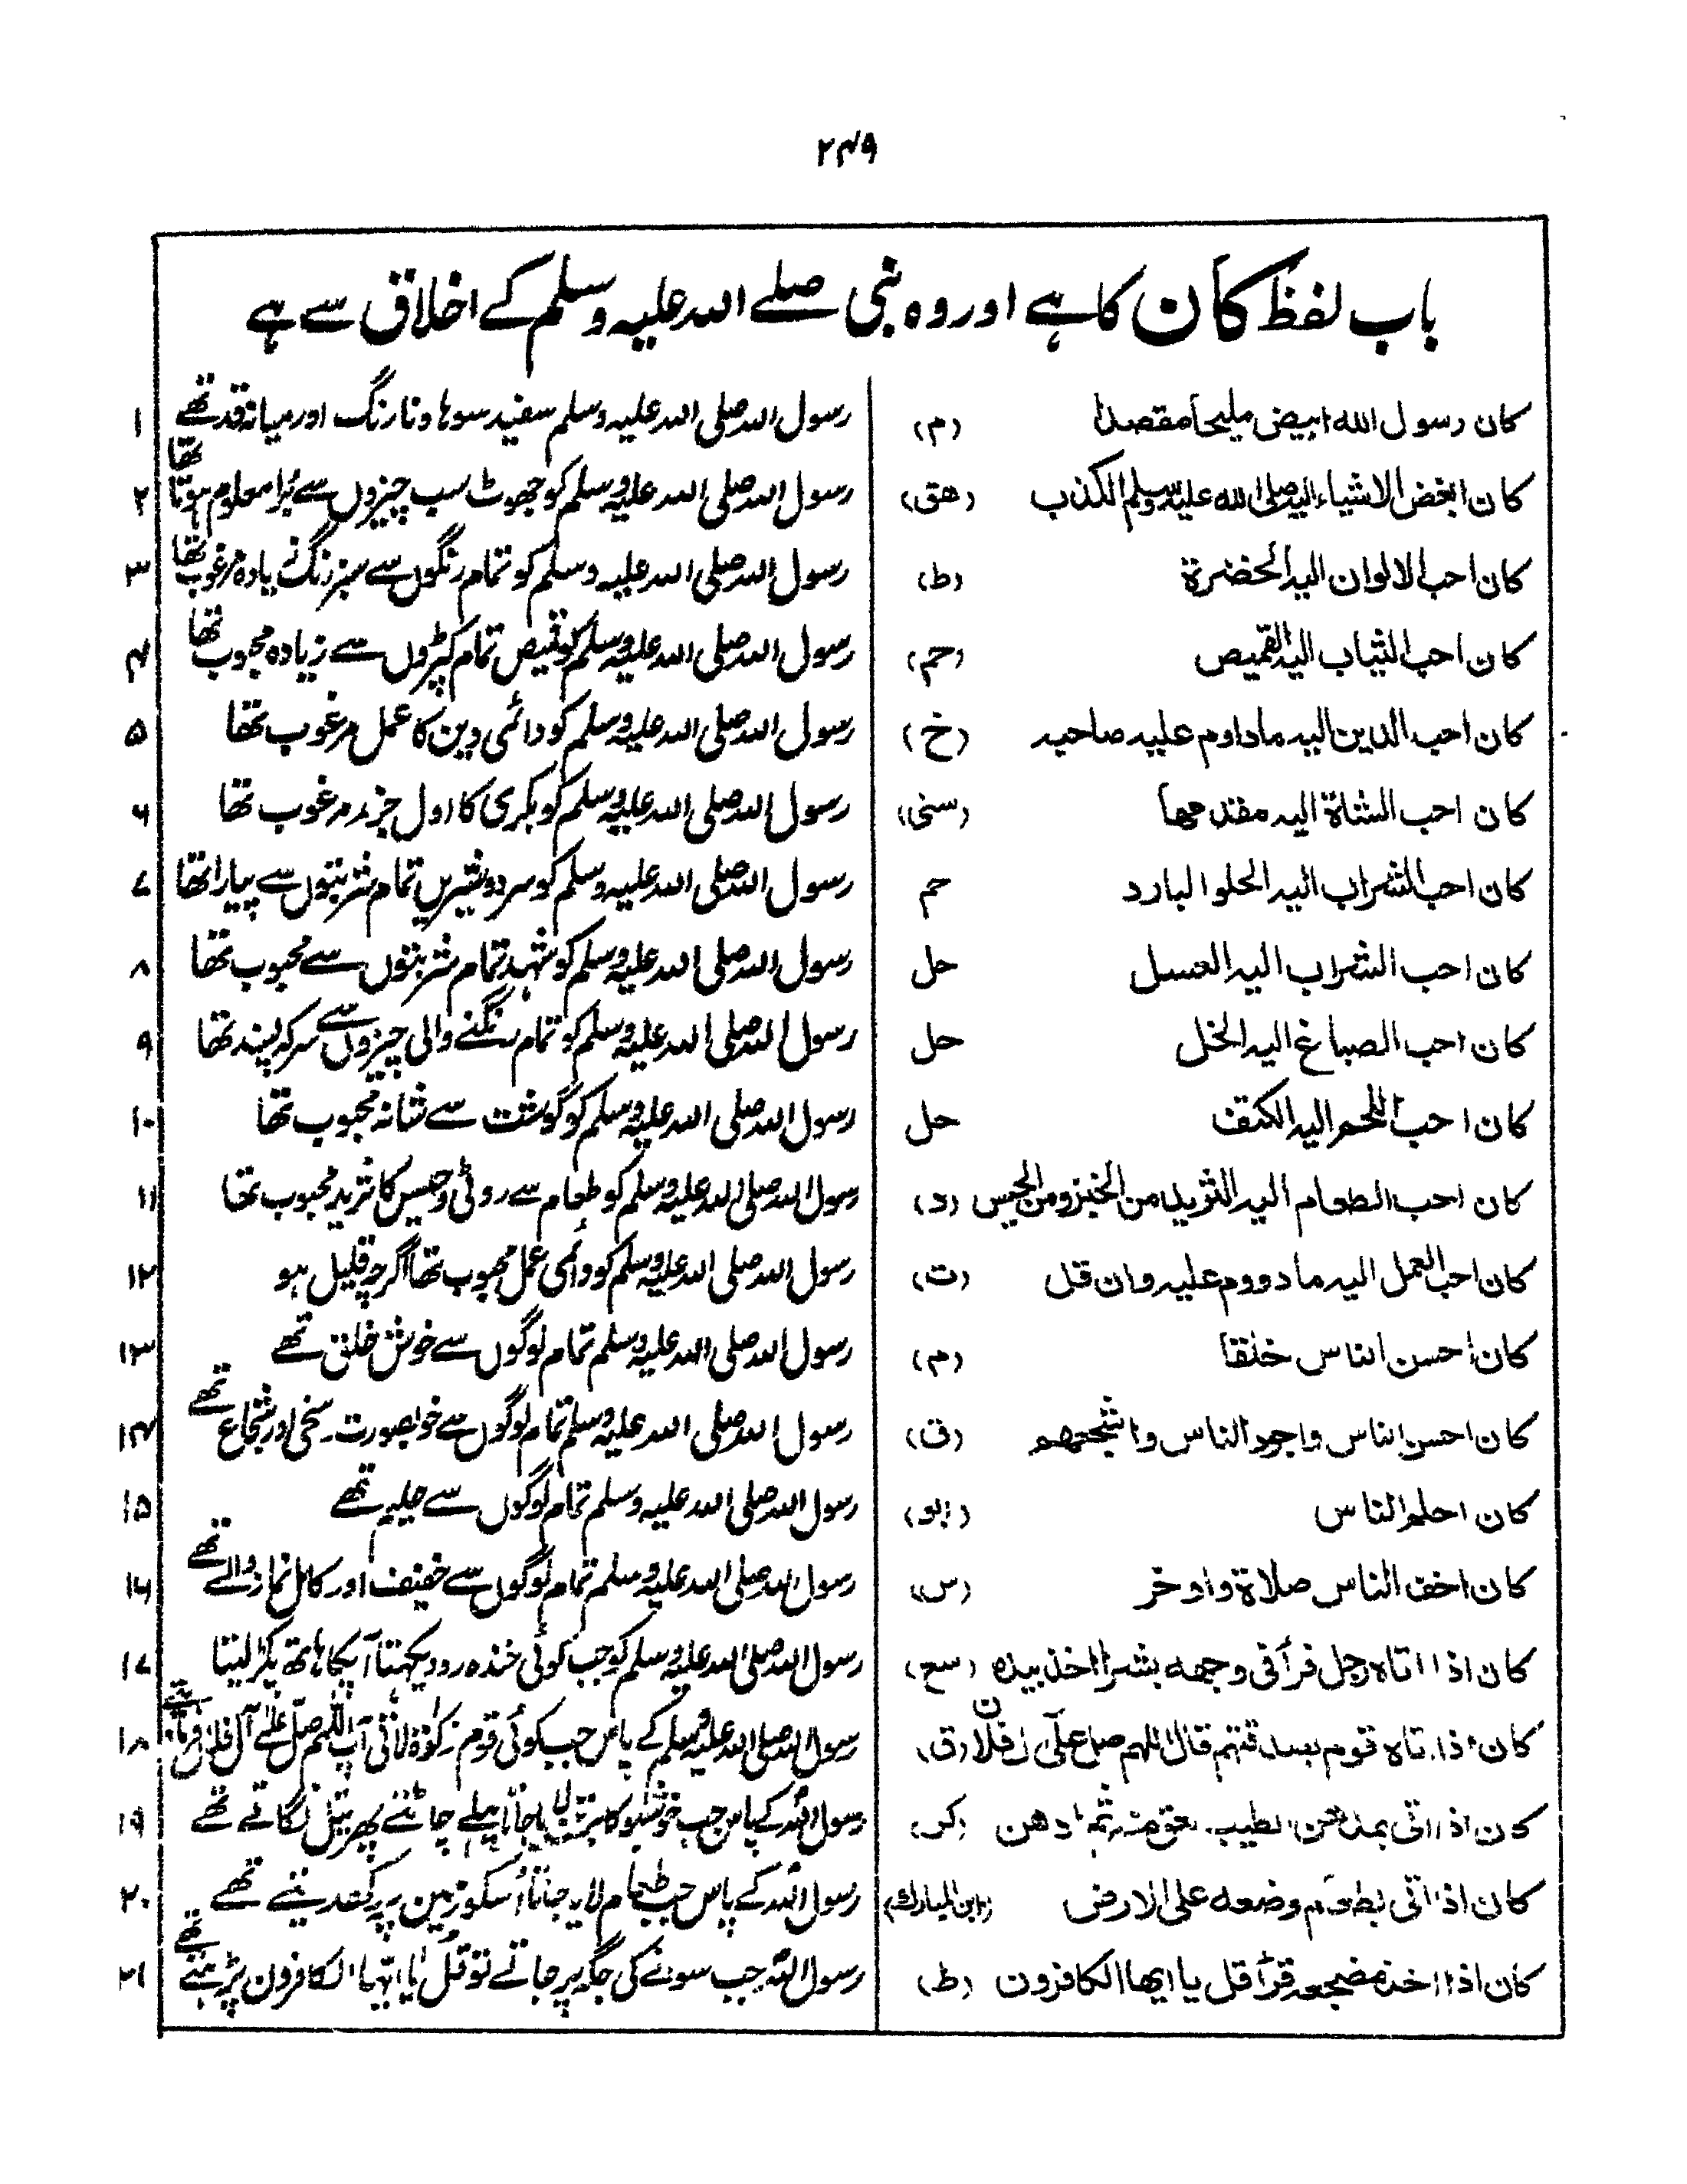 ۲۴۹
باب لفظ کان کا ہے اور وہ نبی صلے اللہ علیہ وسلم کے اخلاق سے ہے
کان رسول الله ابیض ملیحا مقصدا (م) رسول اللہ صلی اللہ علیہ وسلم سفید سوہاونا رنگ اور میانہ قد تھے ۱
کان ابغض الاشیاء الیہ صلی الله علیہ وسلم الکذب (هق) رسول اللہ صلی اللہ علیہ وسلم کو جھوٹ سب چیزوں سے بُرا معلوم ہوتا تھا ۲
کان احب الالوان الیہ الخضرة (ط) رسول اللہ صلی اللہ علیہ وسلم کو تمام رنگوں سے سبز رنگ زیادہ مرغوب تھا ۳
کان احب الثیاب الیہ القمیص (حم) رسول اللہ صلی اللہ علیہ وسلم کو قمیص تمام کپڑوں سے زیادہ محبوب تھا ۴
کان احب الدین الیہ ماداوم علیہ صاحبہ (خ) رسول اللہ صلی اللہ علیہ وسلم کو دائمی دین کا عمل مرغوب تھا ۵
کان احب الشاة الیہ مقدمھا (سنی) رسول اللہ صلی اللہ علیہ وسلم کو بکری کا اول جزء مرغوب تھا ۶
کان احب الشراب الیہ الحلو البارد حم رسول اللہ صلی اللہ علیہ وسلم کو سرد و شیریں تمام شربتوں سے پیارا تھا ۷
کان احب الشراب الیہ العسل حل رسول اللہ صلی اللہ علیہ وسلم کو شہد تمام شربتوں سے محبوب تھا ۸
کان احب الصباغ الیہ الخل حل رسول اللہ صلی اللہ علیہ وسلم کو تمام رنگنے والی چیزوں سے سرکہ پسند تھا ۹
کان احب اللحم الیہ الکتف حل رسول اللہ صلی اللہ علیہ وسلم کو گوشت سے شانہ محبوب تھا ۱۰
کان احب الطعام الیہ الثرید من الخبز و من الحیس (د) رسول اللہ صلی اللہ علیہ وسلم کو طعام سے روٹی و حیس کا ثرید محبوب تھا ۱۱
کان احب العمل الیہ ما دووم علیہ وان قل (ت) رسول اللہ صلی اللہ علیہ وسلم کو دائمی عمل محبوب تھا اگرچہ قلیل ہو ۱۲
کان احسن الناس خلقا (م) رسول اللہ صلی اللہ علیہ وسلم تمام لوگوں سے خوش خلق تھے ۱۳
کان احسن الناس واجود الناس واشجعھم (ق) رسول اللہ صلی اللہ علیہ وسلم تمام لوگوں سے خوبصورت۔ سخی اور شجاع تھے ۱۴
کان احلم الناس (ابو) رسول اللہ صلی اللہ علیہ وسلم تمام لوگوں سے حلیم تھے ۱۵
کان اخف الناس صلاة و (س) رسول اللہ صلی اللہ علیہ وسلم تمام لوگوں سے خفیف اور کامل نماز والے تھے ۱۶
کان اذا اتاہ رجل فرأی فی وجھہ بشرا اخذ بیدہ (سع) رسول اللہ صلی اللہ علیہ وسلم کو جب کوئی خندہ رو دیکھتا آپکا ہاتھ پکڑ لیتا ۱۷
کان اذا اتاہ قوم بصدقتھم قال اللھم صل علی آل فلان (ق) رسول اللہ صلی اللہ علیہ وسلم کے پاس جب کوئی قوم زکوٰۃ لاتی آپ اللّٰھم صل علے آل فلاں فرماتے ۱۸
کان اذا اتی بمدھن الطیب لعق منہ ثم ادھن (کر) رسول اللہ کے پاس جب خوشبو کا لایا جاتا پہلے چاٹتے پھر تیل لگاتے تھے ۱۹
کان اذا اتی بطعام وضعہ علی الارض (ابن المبارک) رسول اللہ کے پاس جب طعام لایا جاتا اُسکو زمین پر رکھدیتے تھے ۲۰
کان اذا اخذ مضجعہ قرأ قل یا ایھا الکافرون (ط) رسول اللہ جب سونے کی جگہ پر جاتے تو قل یا ایہا الکافرون پڑہتے تھے ۲۱